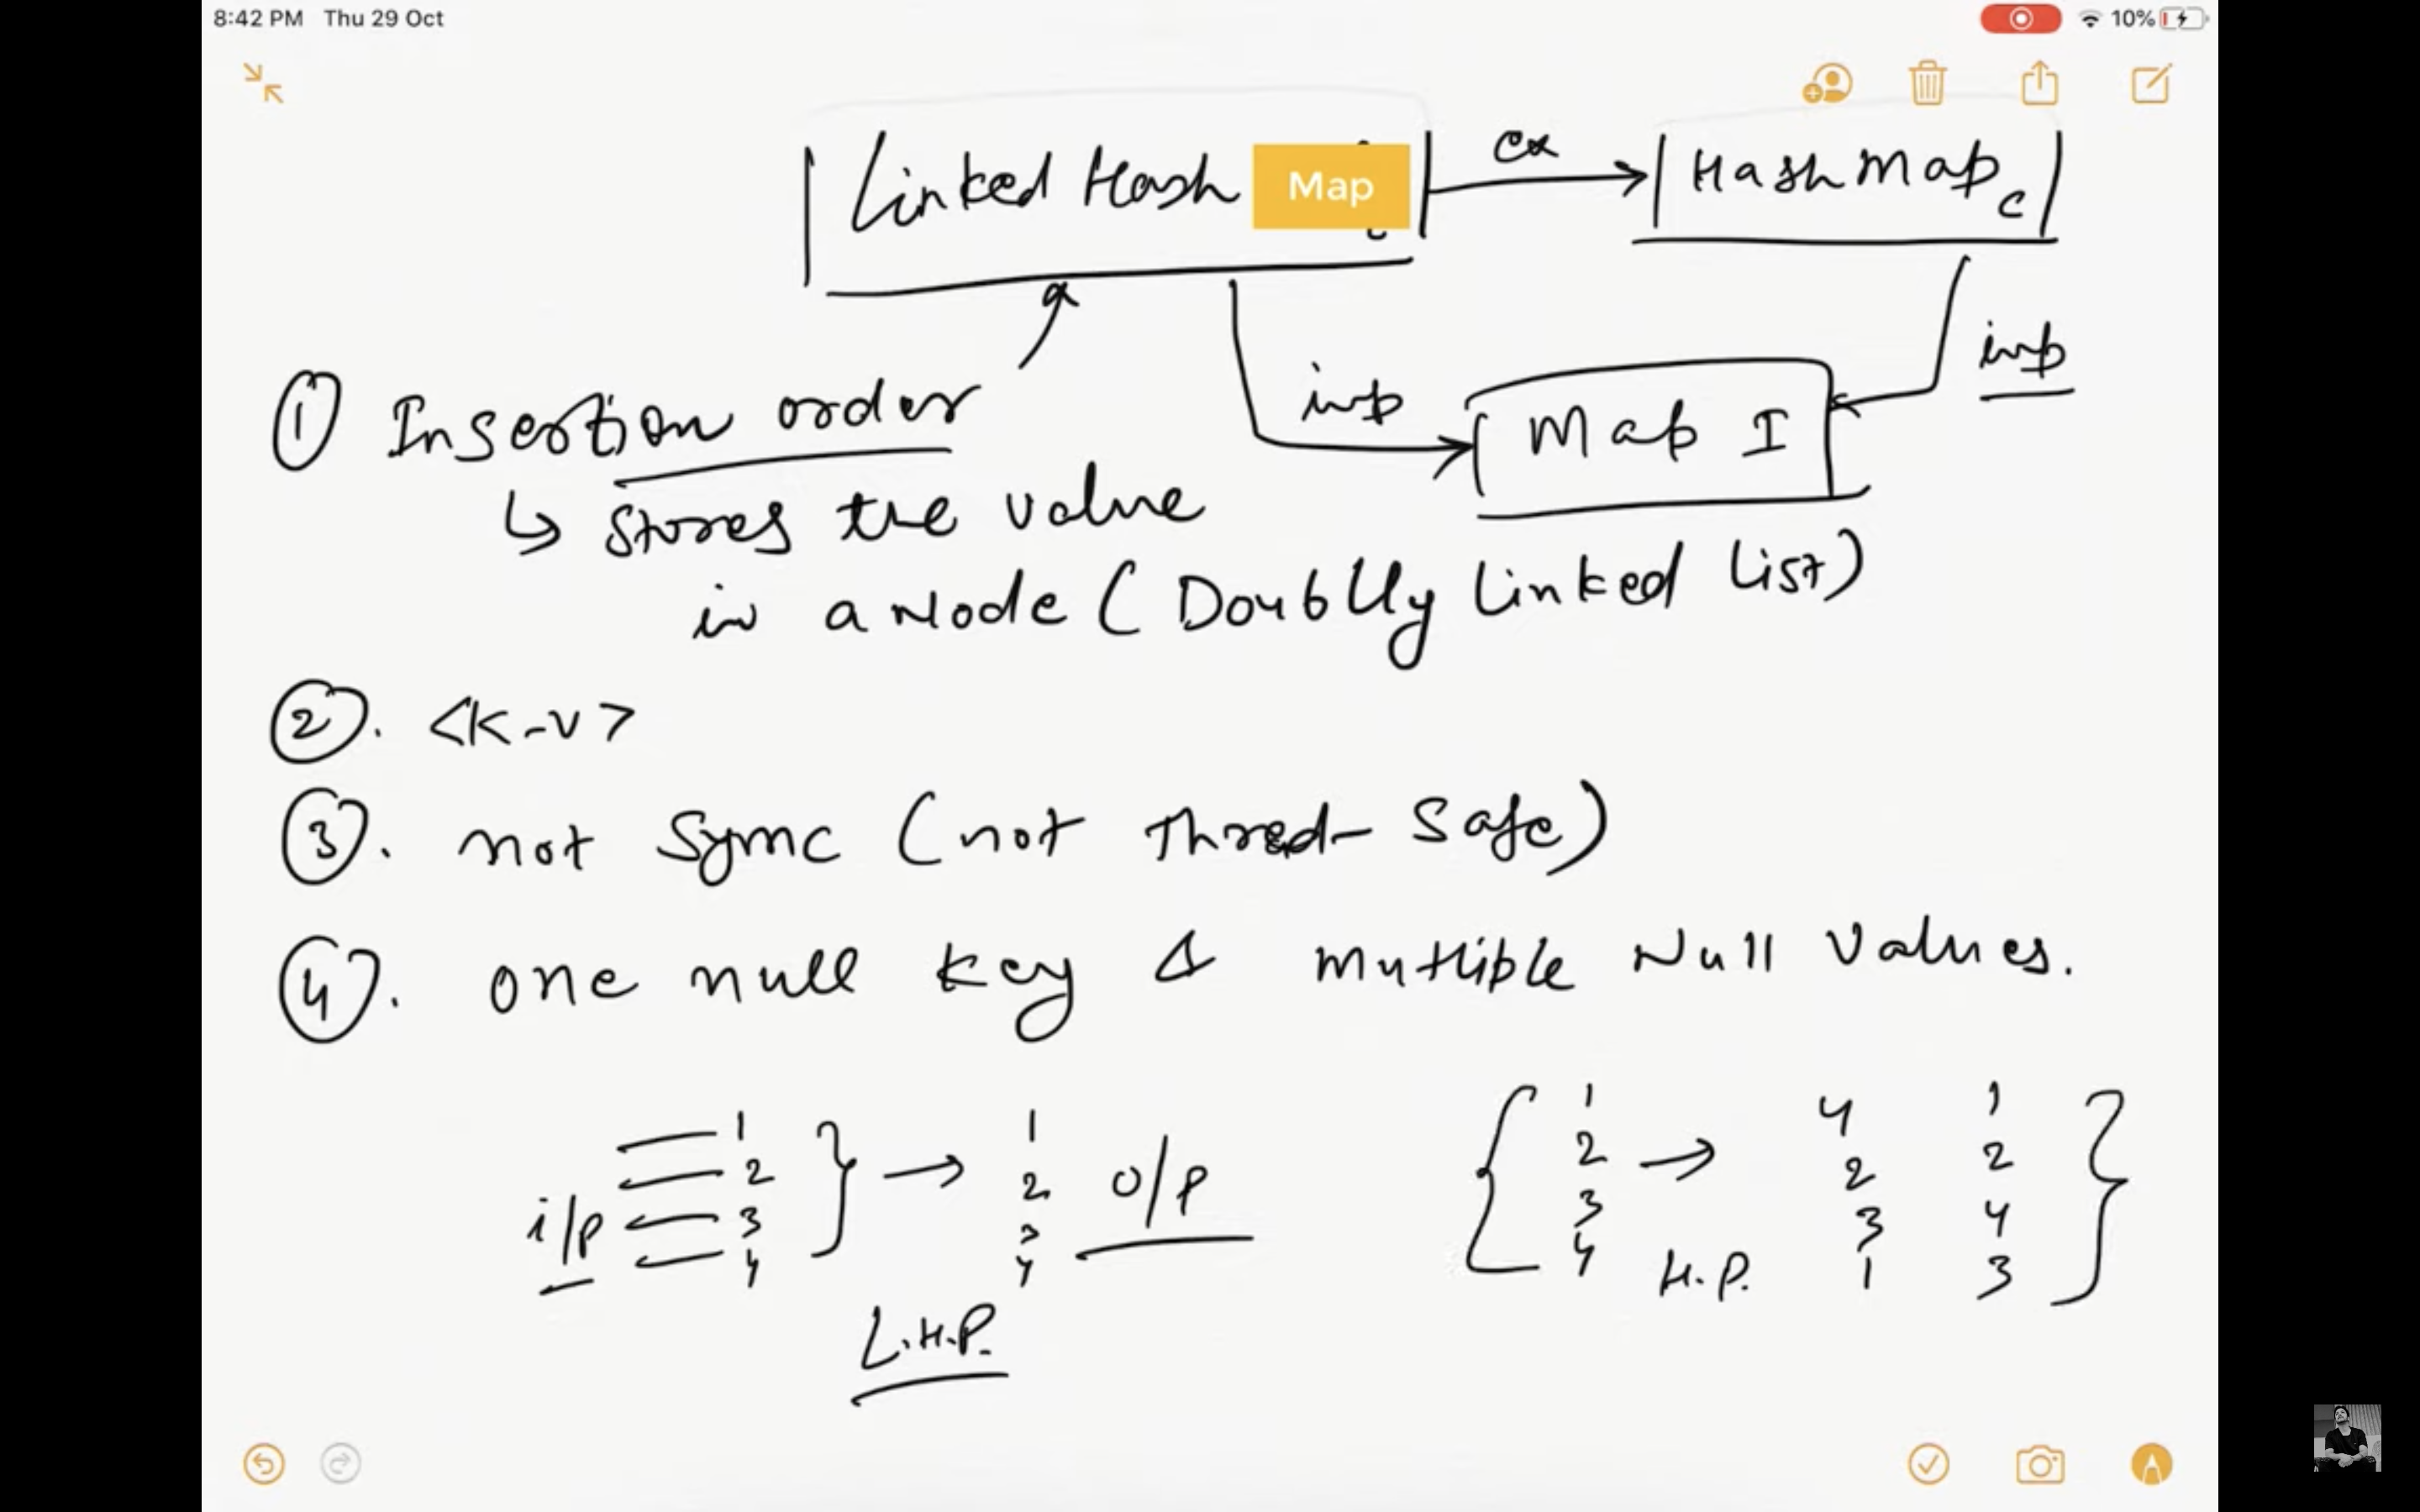 8:42 PM Thu 29 Oct
10%
Linked Hash Map
ex
HashMap c
imp
imp
Map I
1 Insertion order
↳ stores the value
in a Node (Doublly Linked List)
2. <K-V>
3. not Sync (not Thred-Safe)
4. one null key & mutliple Null Values.
i/p
1
2
3
4
→
1
2
3
4
o/p
L.H.P.
1
2
3
4
→
H.P.
4
2
3
1
1
2
4
3